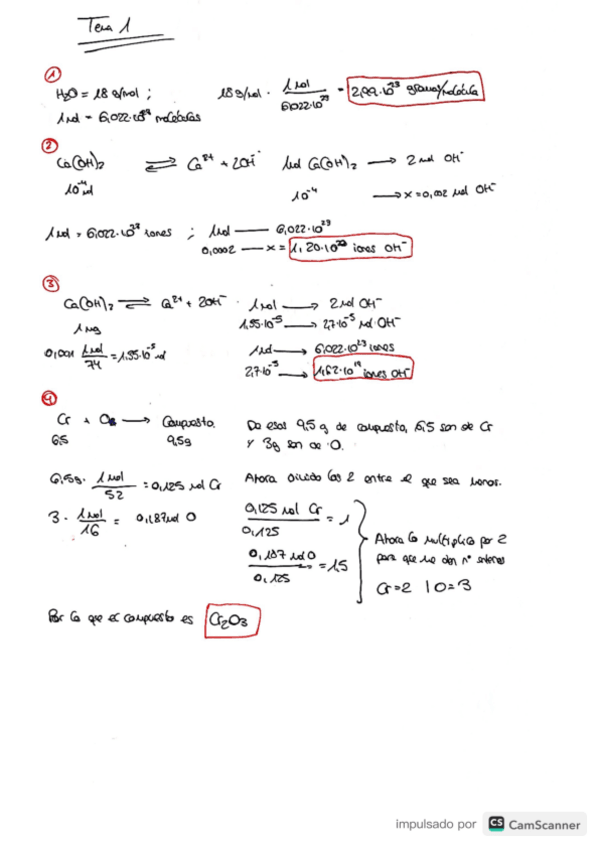 Tema 1
①
H₂O = 18 g/mol ; 18 g/mol · 1 mol / 6,022·10²³ = 2,99·10⁻²³ gramos/molécula
1 mol = 6,022·10²³ moléculas
②
Ca(OH)₂ ⇌ Ca²⁺ + 2OH⁻ 1 mol Ca(OH)₂ → 2 mol OH⁻
10⁻⁴ mol 10⁻⁴ → x = 0,002 mol OH⁻
1 mol = 6,022·10²³ iones ; 1 mol — 6,022·10²³
0,0002 — x = 1,20·10²⁰ iones OH⁻
③
Ca(OH)₂ ⇌ Ca²⁺ + 2OH⁻ · 1 mol → 2 mol OH⁻
1 mg 1,35·10⁻⁵ → 2,7·10⁻⁵ mol OH⁻
0,001 1 mol / 74 = 1,35·10⁻⁵ mol 1 mol → 6,022·10²³ iones
2,7·10⁻⁵ → 1,62·10¹⁹ iones OH⁻
④
Cr + O₂ → Compuesto. De esos 9,5 g de compuesto, 6,5 son de Cr
6,5 9,5g y 3g son de O.
6,5g · 1 mol / 52 = 0,125 mol Cr Ahora divido los 2 entre el que sea menor.
3 · 1 mol / 16 = 0,187 mol O 0,125 mol Cr / 0,125 = 1
0,187 mol O / 0,125 = 1,5
Ahora lo multiplico por 2
para que me den nº enteros
Cr = 2 | O = 3
Por lo que el compuesto es Cr₂O₃
impulsado por CS CamScanner